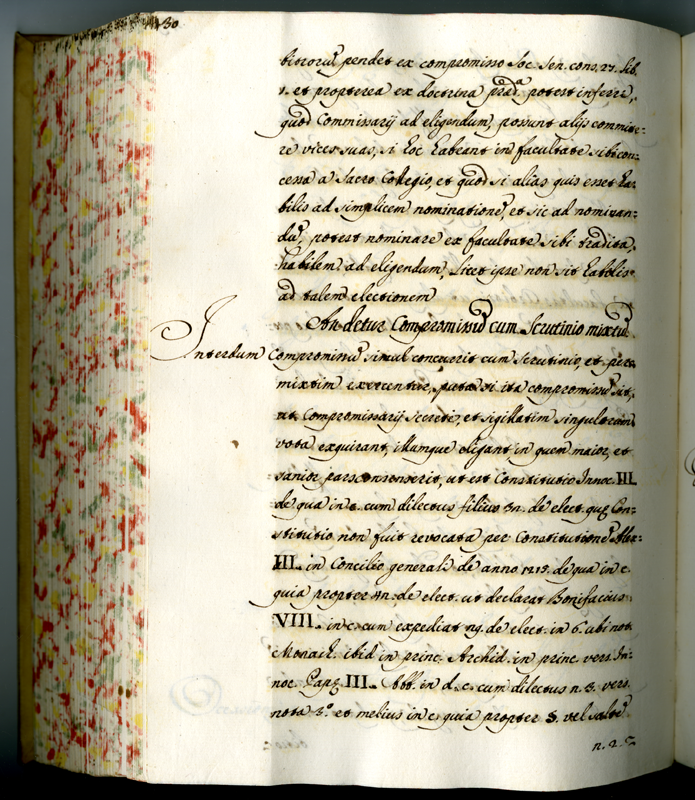 130
bitrorũ pendet ex compromisso loc. sen. cons. 27. lib.
1. et propterea ex doctrina præd.ª potest inferri,
quod Commissarij ad eligendum, possunt alijs commite=
re vices suas, si hoc habeant in facultate sibi con=
cessa a Sacro Collegio, et quod si alias quis esset ha=
bilis ad simplicem nominationẽ, et sic ad nominan=
dũ, potest nominare ex facultate sibi tradita,
habilem ad eligendum, licet ipse non sit habilis
ad talem electionem
An detur Compromissũ cum Scrutinio mixtũ
Interdum Compromissũ simul concurrit cum scrutinio, et per
mixtim exercentur, puta si ita compromissũ sit,
ut Compromissarij secretè, et sigillatim singulorum
vota exquirant, illumque eligant, in quem maior, et
sanior pars consenserit, ut est Constitutio Innoc. III.
de qua in c. cum dilectus filius de elect. quæ Con=
stitutio non fuit revocata per Constitutionẽ Alex=
III. in Concilio generali de anno 1215. de qua in c.
quia propter de elect. ut declarat Bonifacius
VIII. in c. cum expediat de elect. in 6. ubi not.
Monach. ibid in princ. Archid. in princ. vers. In=
noc. Papæ III. Abb. in d. c. cum dilectus n. 3. vers.
nota 3.º et melius in c. quia propter S. vel saltẽ
n. 2.